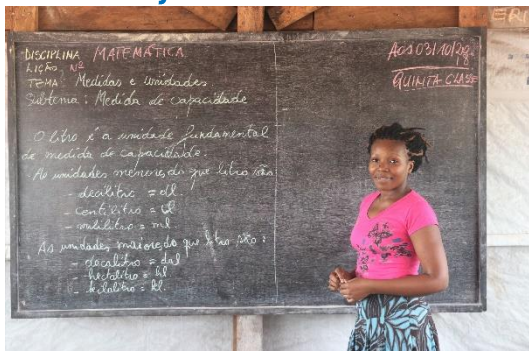 DISCIPLINA MATEMÁTICA
LIÇÃO Nº
TEMA: Medidas e unidades
Subtema: Medida de capacidade
O litro é a unidade fundamental
de medida de capacidade.
As unidades menores do que litro são
- decilitro = dl
- centilitro = cl
- mililitro = ml
As unidades maiores do que litro são:
- decalitro = dal
- hectolitro = hl
- kilolitro = kl.
AOS 03/10/2018
QUINTA CLASSE